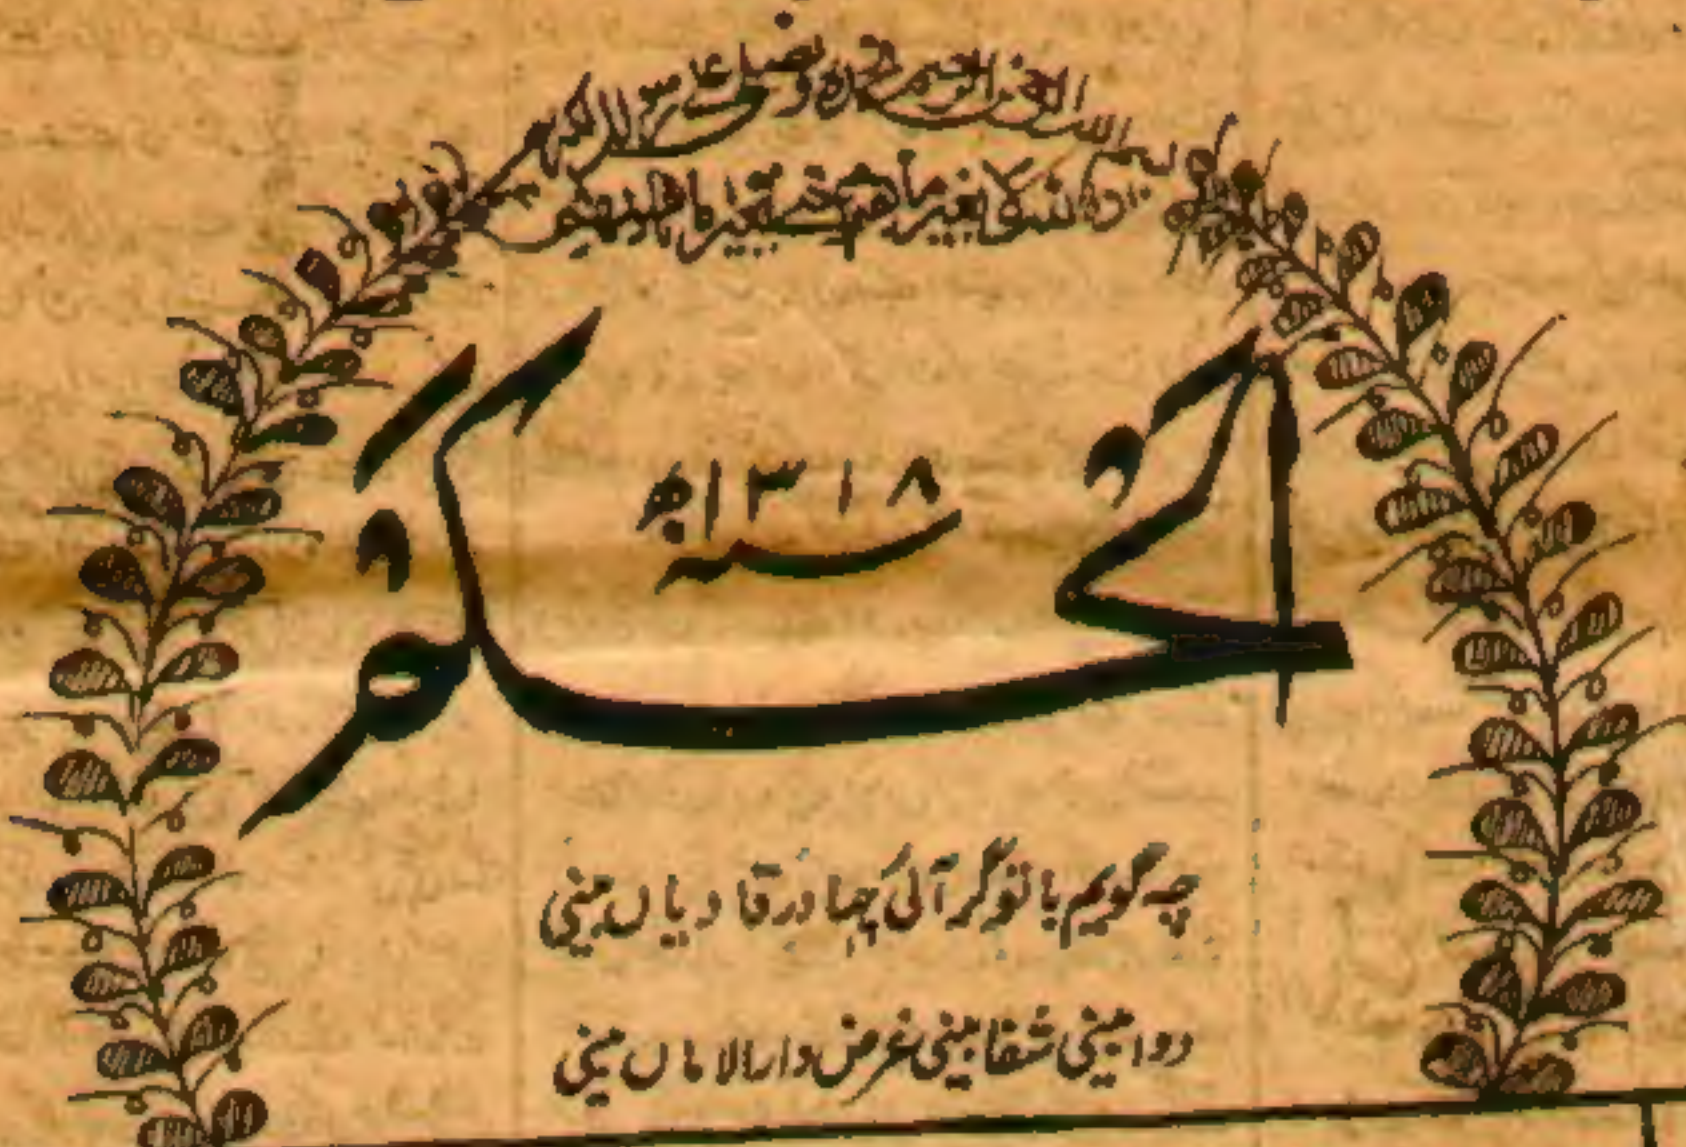 بسم الله الرحمن الرحیم نحمده ونصلی علی رسوله الکریم
ان الله لا یغیر ما بقوم حتی یغیروا ما بانفسهم
الحکم
سنه ۱۳۱۸ھ
چہ گویم با تو گر آئی چہا در قادیاں بینی
دوا بینی شفا بینی غرض دار الاماں بینی